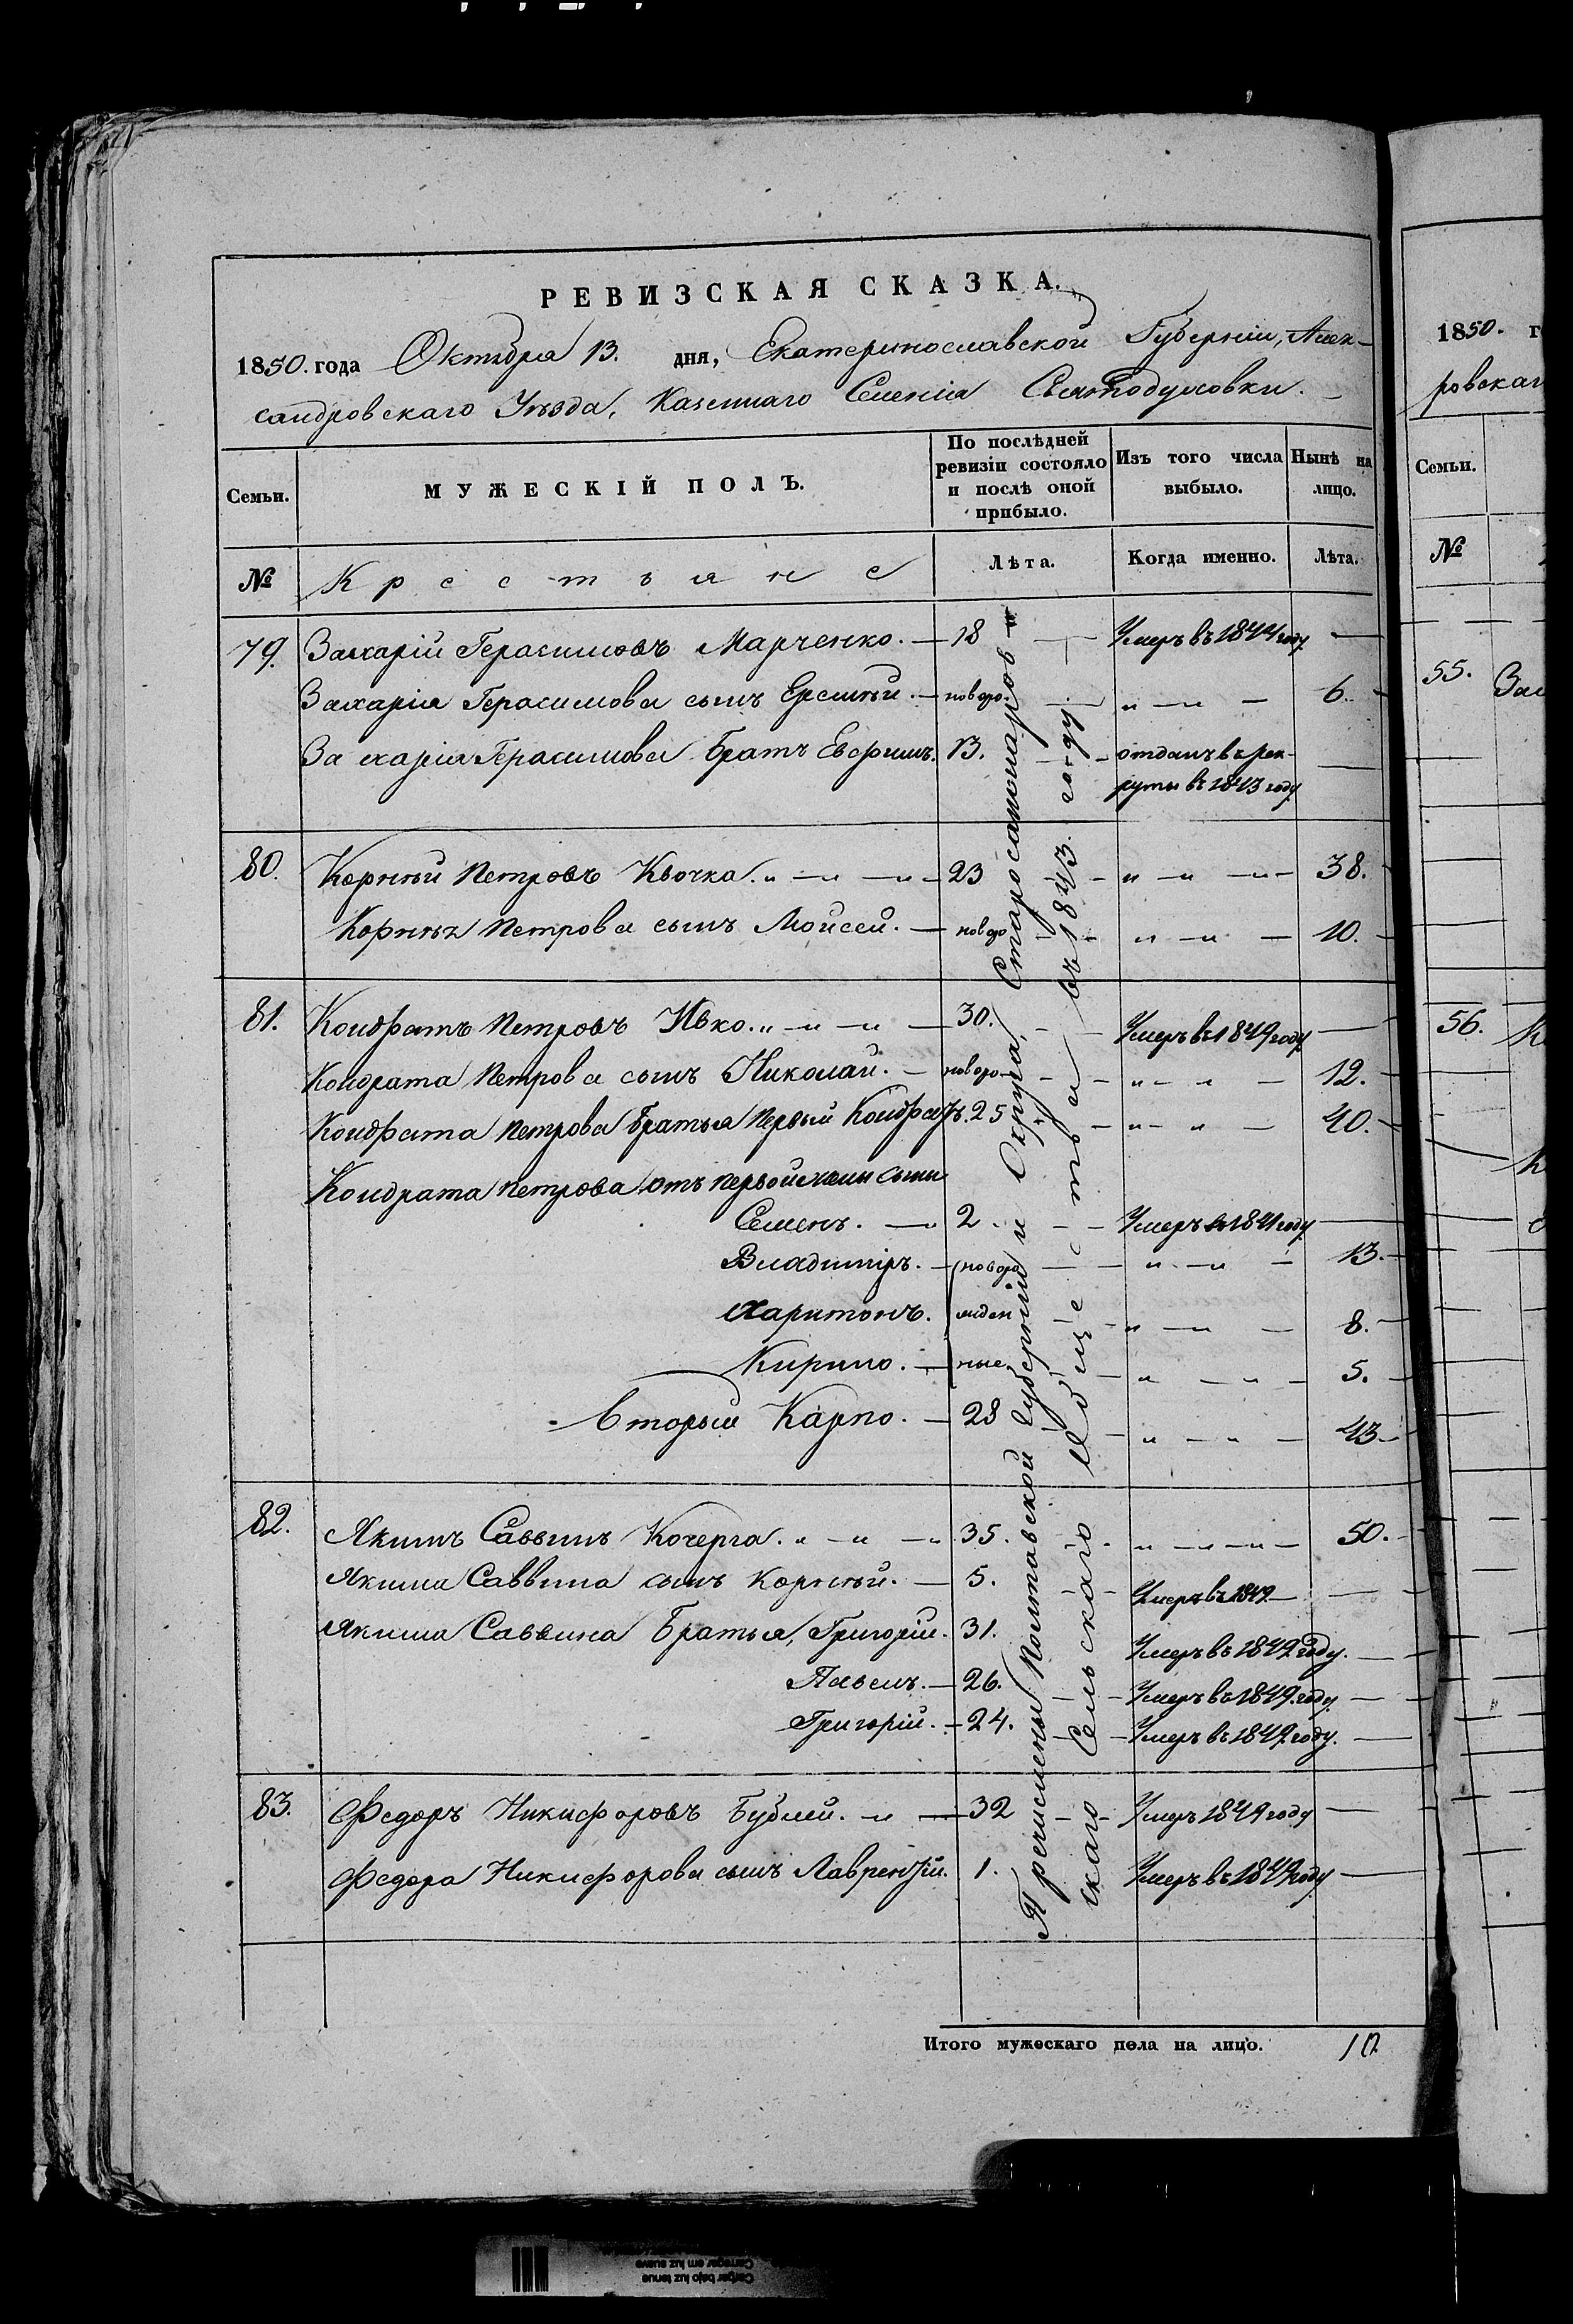 РЕВИЗСКАЯ СКАЗКА.
1850. года Октября 13. дня, Екатеринославской Губерніи, Алек-
сандровскаго Уѣзда, Казеннаго Селенія
Семьи.
МУЖЕСКІЙ ПОЛЪ.
По послѣдней ревизіи состояло и послѣ оной прибыло.
Изъ того числа выбыло.
Нынѣ на лицо.
№ Крестьяне Лѣта. Когда именно. Лѣта.
79. Захарій Герасимовъ Марченко. — 18 — Умеръ въ 1844 году. —
Захарія Герасимова сынъ Еремѣй. — новоро. — „ — „ — 6.
Захарія Герасимова братъ Евфимъ. 13. — отданъ въ рек-
руты въ 1843 году. —
80. Корнѣй Петровъ Квочка. „ — „ — „ — 23 — „ — „ — „ — 38.
Корнѣя Петрова сынъ Моисей. — новоро — „ — „ — 10.
81. Кондратъ Петровъ Ивко. „ — „ — „ — 30. — Умеръ въ 1849 году —
Кондрата Петрова сынъ Николай. — новоро — „ — „ — 12.
Кондрата Петрова братья первый Кондратъ. 25 — „ — „ — 40.
Кондрата Петрова отъ первой жены сыны
Семенъ. — 2 — Умеръ въ 1841 году —
Владиміръ. — новоро — „ — „ — 13.
Харитонъ. жден — „ — „ — 8.
Кирило. — ные — „ — „ — 5.
Вторый Карпо. — 28 — „ — „ — 43
82. Якимъ Саввинъ Кочерга. „ — „ — „ 35. — „ — „ — „ — 50.
Якима Саввина сынъ Корнѣй. — 5. — Умеръ въ 1849 —
Якима Саввина братья, Григорій. 31. Умеръ въ 1849 году. —
Павелъ. — 26. — Умеръ въ 1849. году. —
Григорій. — 24. — Умеръ въ 1849 году. —
83. Федоръ Никифоровъ Бублей. — „ — 32 — Умеръ 1849 году —
Федора Никифорова сынъ Лаврентій. 1. Умеръ въ 1849 году —
Причислены Полтавской Губерніи и Округа, Старосанжаров-
скаго Сельскаго Общества въ 1843. году
Итого мужескаго пола на лицо. 10
1850. г
ровскаг
Семьи.
№
55. Зах
56. К